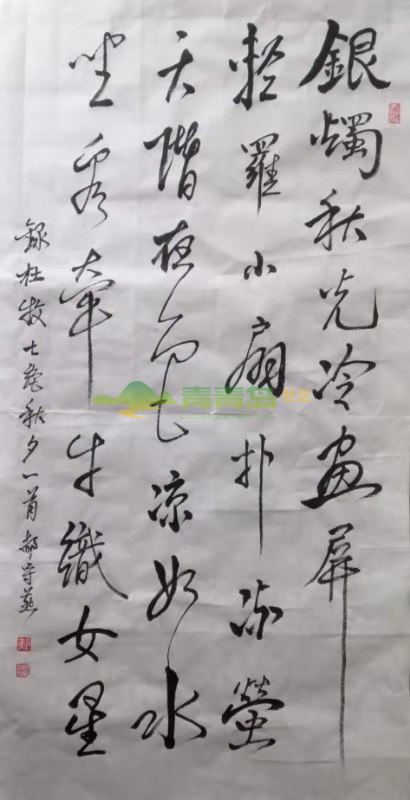 銀燭秋光冷畫屏
輕羅小扇扑流螢
天階夜色凉如水
坐看牽牛織女星
錄杜牧七絕秋夕一首郝守
青青岛社区